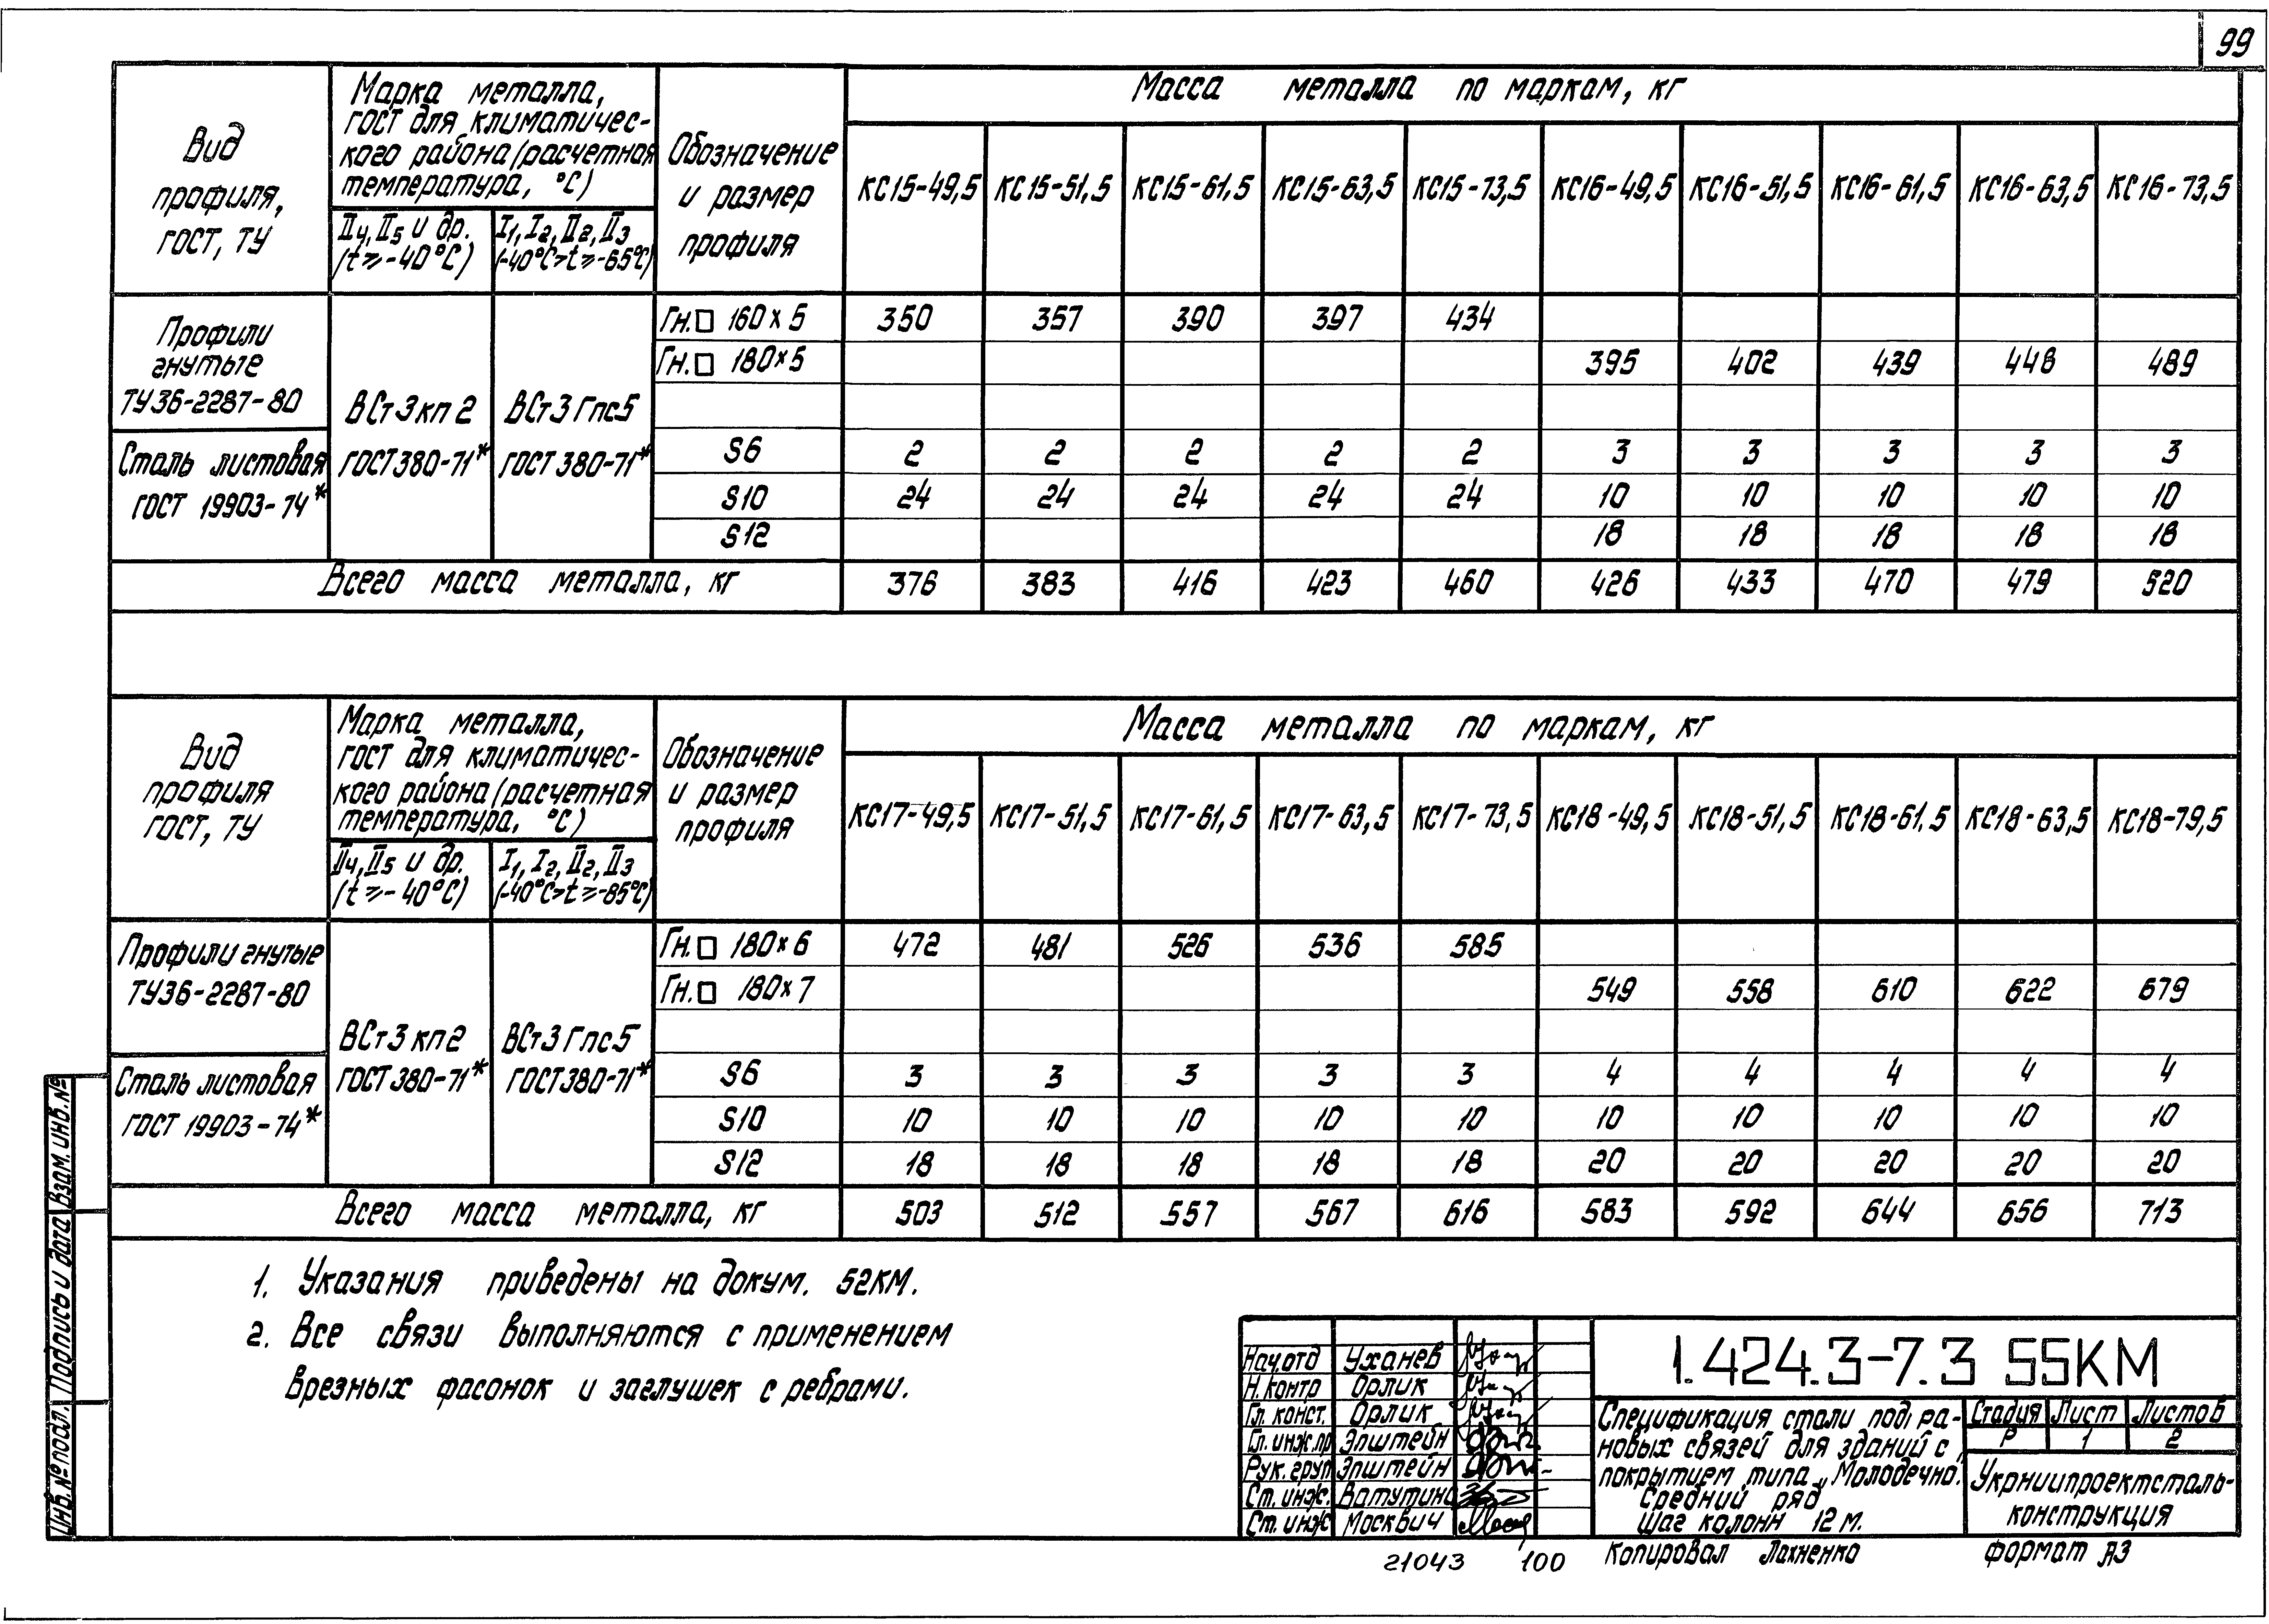 99
Вид профиля, ГОСТ, ТУ
Марка металла,
ГОСТ для климатичес-
кого района (расчетная
температура, °С)
II4, II5 и др.
(t ⩾ -40°С)
I1, I2, II2, II3
(-40°С>t⩾-65°С)
Обозначение
и размер
профиля
Масса металла по маркам, кг
КС15-49,5 КС15-51,5 КС15-61,5 КС15-63,5 КС15-73,5 КС16-49,5 КС16-51,5 КС16-61,5 КС16-63,5 КС16-73,5
Профили
гнутые
ТУ36-2287-80
Сталь листовая
ГОСТ 19903-74*
ВСт3кп2
ГОСТ 380-71*
ВСт3Гпс5
ГОСТ 380-71*
Гн.□ 160×5 350 357 390 397 434
Гн.□ 180×5 395 402 439 448 489
S6 2 2 2 2 2 3 3 3 3 3
S10 24 24 24 24 24 10 10 10 10 10
S12 18 18 18 18 18
Всего масса металла, кг 376 383 416 423 460 426 433 470 479 520
Вид
профиля
ГОСТ, ТУ
Марка металла,
ГОСТ для климатичес-
кого района (расчетная
температура, °С)
II4, II5 и др.
(t ⩾ -40°С)
I1, I2, II2, II3
(-40°С>t⩾-85°С)
Обозначение
и размер
профиля
Масса металла по маркам, кг
КС17-49,5 КС17-51,5 КС17-61,5 КС17-63,5 КС17-73,5 КС18-49,5 КС18-51,5 КС18-61,5 КС18-63,5 КС18-79,5
Профили гнутые
ТУ36-2287-80
Сталь листовая
ГОСТ 19903-74*
ВСт3кп2
ГОСТ 380-71*
ВСт3Гпс5
ГОСТ 380-71*
Гн.□ 180×6 472 481 526 536 585
Гн.□ 180×7 549 558 610 622 679
S6 3 3 3 3 3 4 4 4 4 4
S10 10 10 10 10 10 10 10 10 10 10
S12 18 18 18 18 18 20 20 20 20 20
Всего масса металла, кг 503 512 557 567 616 583 592 644 656 713
1. Указания приведены на докум. 52КМ.
2. Все связи выполняются с применением
врезных фасонок и заглушек с ребрами.
Инв.№ подл. Подпись и дата Взам. инв.№
Нач.отд Уханев
Н.контр Орлик
Гл. конст. Орлик
Гл. инж.пр Эпштейн
Рук. груп Эпштейн
Ст. инж. Ватутина
Ст. инж Москвич
1.424.3-7.3 55КМ
Спецификация стали под ра-
новых связей для зданий с
покрытием типа „Молодечно.
Средний ряд
Шаг колонн 12 м.
Стадия Лист Листов
Р 1 2
Укрниипроектсталь-
конструкция
21043 100
Копировал Лахненко
формат А3